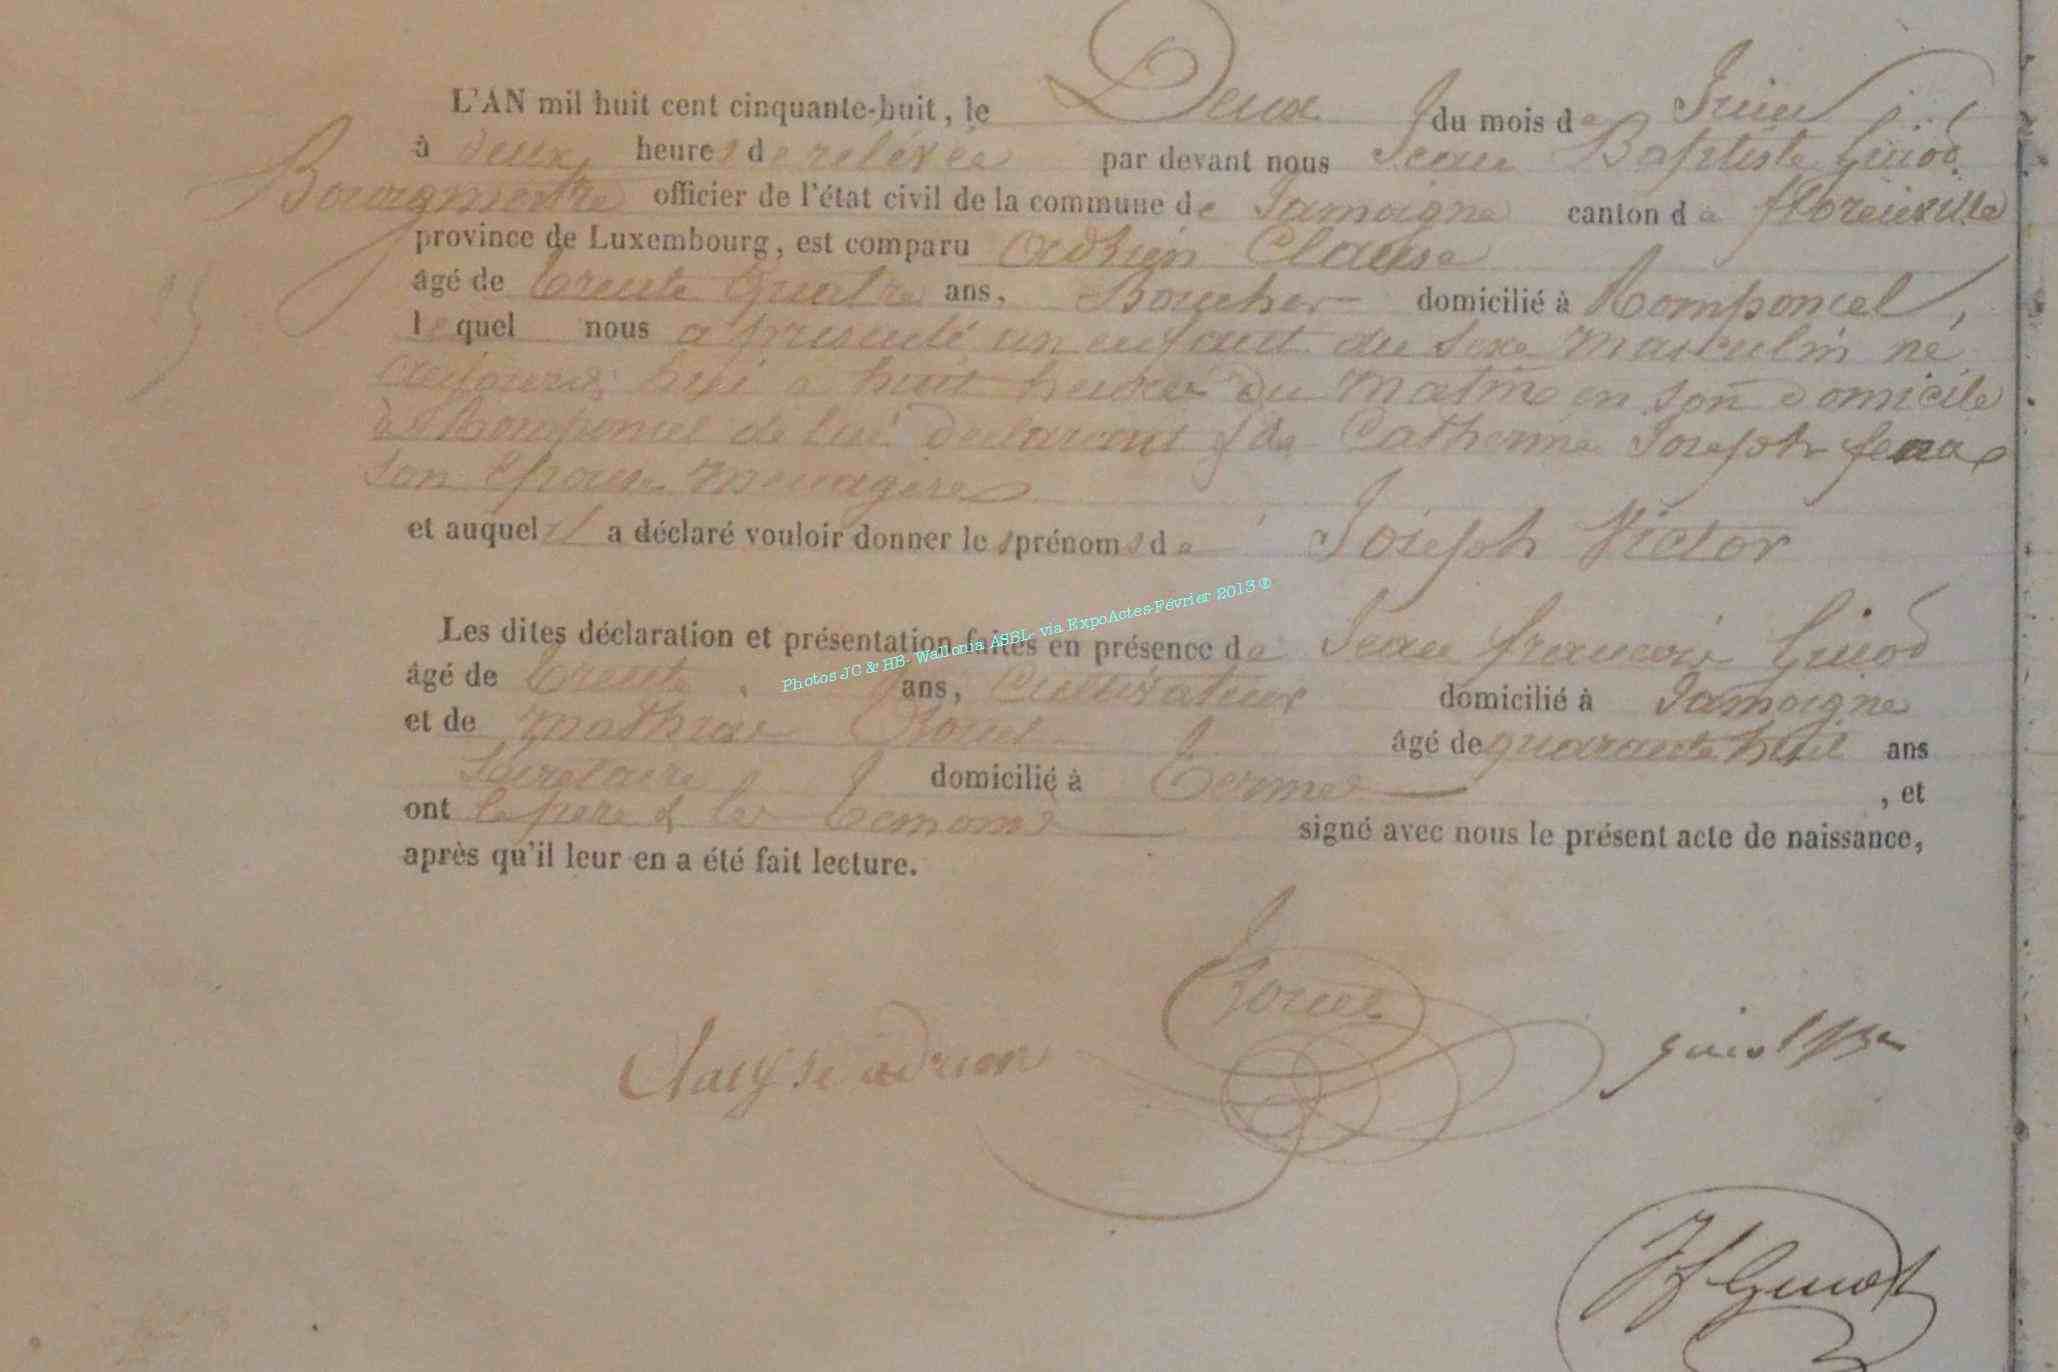 L'AN mil huit cent cinquante-huit, le Deux du mois de Juin
à deux heures de relévée par devant nous Jean Baptiste Guiot
Bourgmestre officier de l'état civil de la commune de Jamoigne canton de florenville
province de Luxembourg, est comparu Adrien Clause
âgé de trente quatre ans, Boucher domicilié à Romponcel,
lequel nous a présenté un enfant du sexe masculin né
aujourd'hui a huit heures du matin en son domicile
à Romponcel de lui déclarant & de Catherine Joseph
son épouse menagère
et auquel il a déclaré vouloir donner les prénoms de Joseph Victor
Les dites déclaration et présentation faites en présence de Jean françois Guiot
âgé de trente ans, Cultivateur domicilié à Jamoigne
et de Mathias âgé de quarante huit ans
Secretaire domicilié à Termes , et
ont le père & les temoins signé avec nous le présent acte de naissance,
après qu'il leur en a été fait lecture.
Photos JC & HB- Wallonia ASBL- via ExpoActes-Février 2013 ®
adrien
JF Guiot